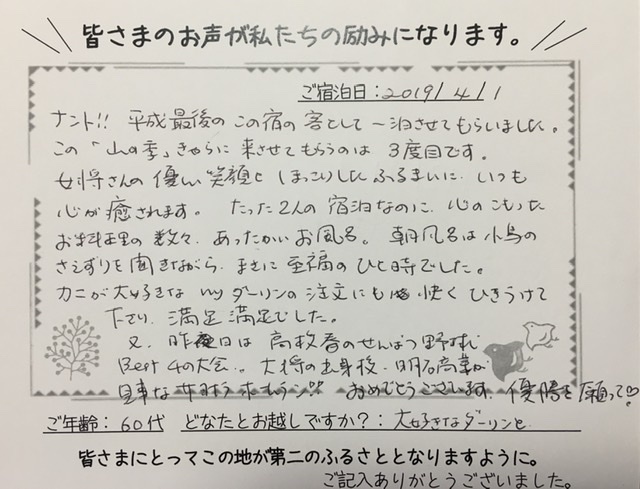 皆さまのお声が私たちの励みになります。
ご宿泊日：2019/4/1
ナント!! 平成最後のこの宿の客として一泊させてもらいました。
この「山の季」きゃらに来させてもらうのは3度目です。
女将さんの優しい笑顔とほっこりしたふるまいに、いつも
心が癒されます。たった2人の宿泊なのに、心のこもった
お料理の数々、あったかいお風呂。朝風呂は小鳥の
さえずりを聞きながら、まさに至福のひと時でした。
カニが大好きなmyダーリンの注文にも快くひきうけて
下さり、満足満足でした。
又、昨夜日は高校春のせんばつ野球
Best4の大会。大将の出身校、明石商業が
見事なサヨナラホームラン!! おめでとうございます。優勝を願って♡
ご年齢：60代 どなたとお越しですか？：大好きなダーリンと
皆さまにとってこの地が第二のふるさととなりますように。
ご記入ありがとうございました。